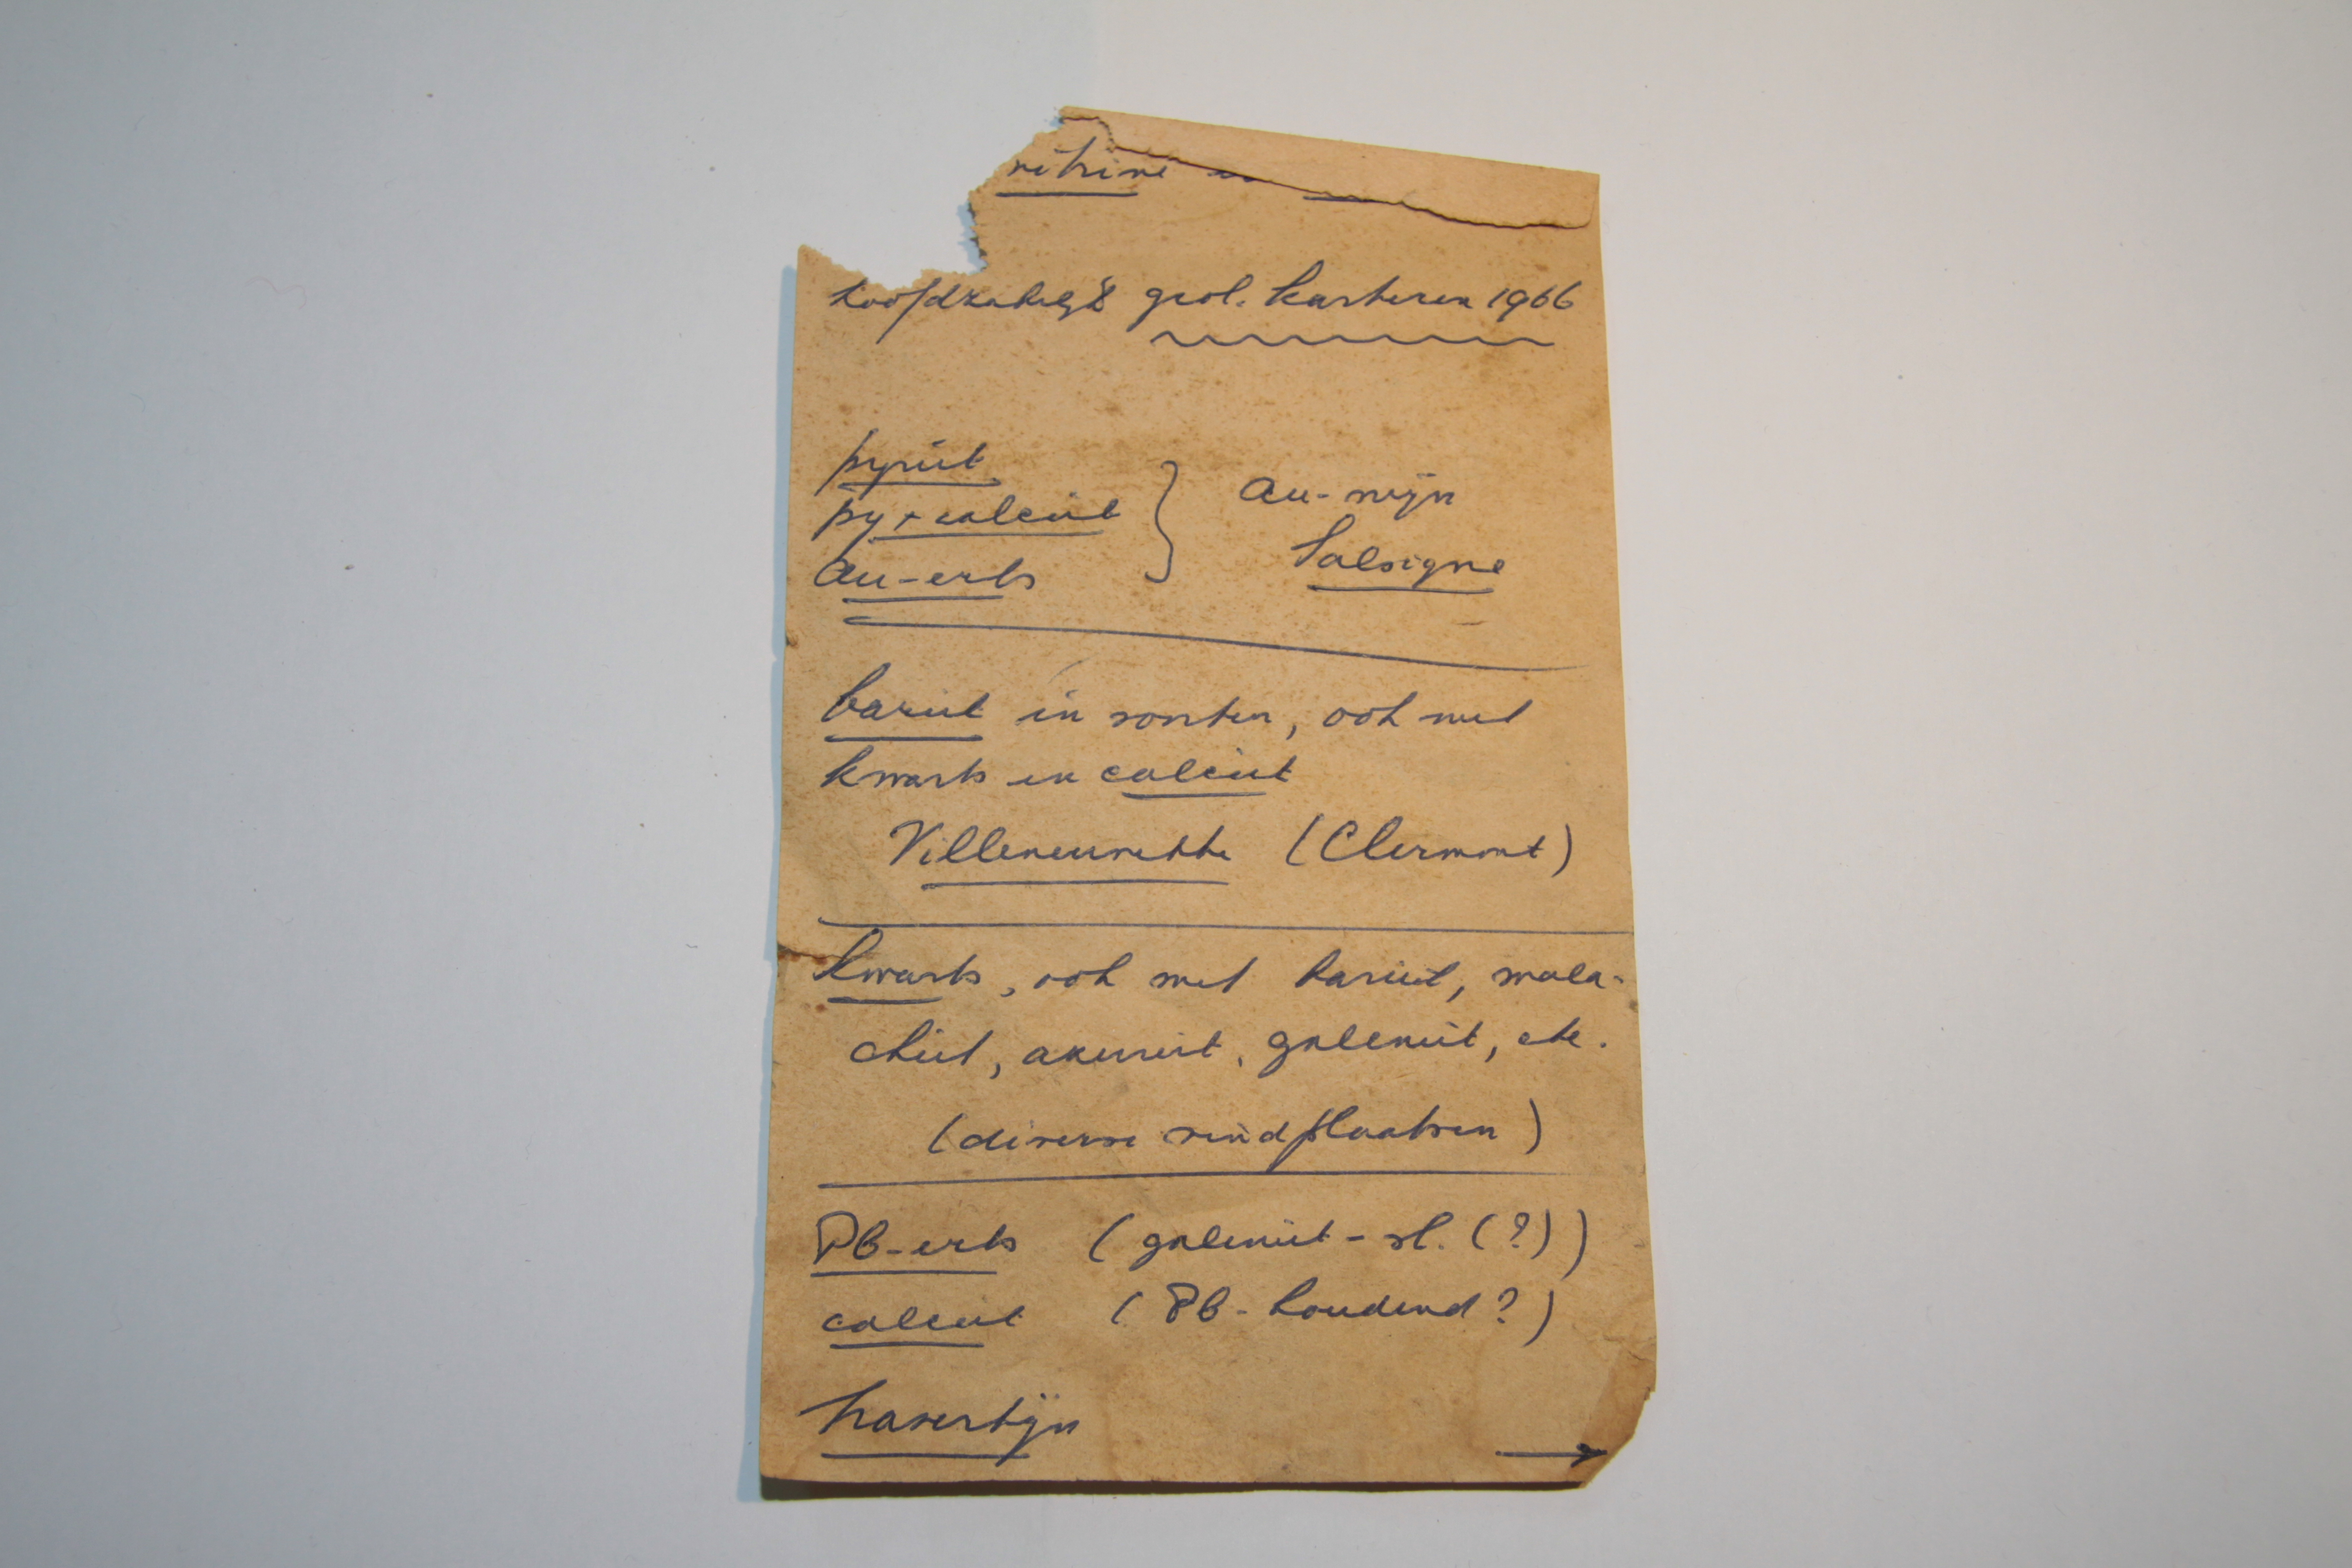 vitrine en
hoofdzakelijk geol. karteren 1966
pyriet
py + calciet
Au-erts
} Au-mijn
Salsigne
bariet in rosetten, ook met
kwarts en calciet
Villeneuvette (Clermont)
kwarts, ook met bariet, mala-
chiet, azuriet, galeniet, etc.
(diverse vindplaatsen)
Pb-erts (galeniet - sl. (?))
calciet (Pb-houdend?)
travertijn
→